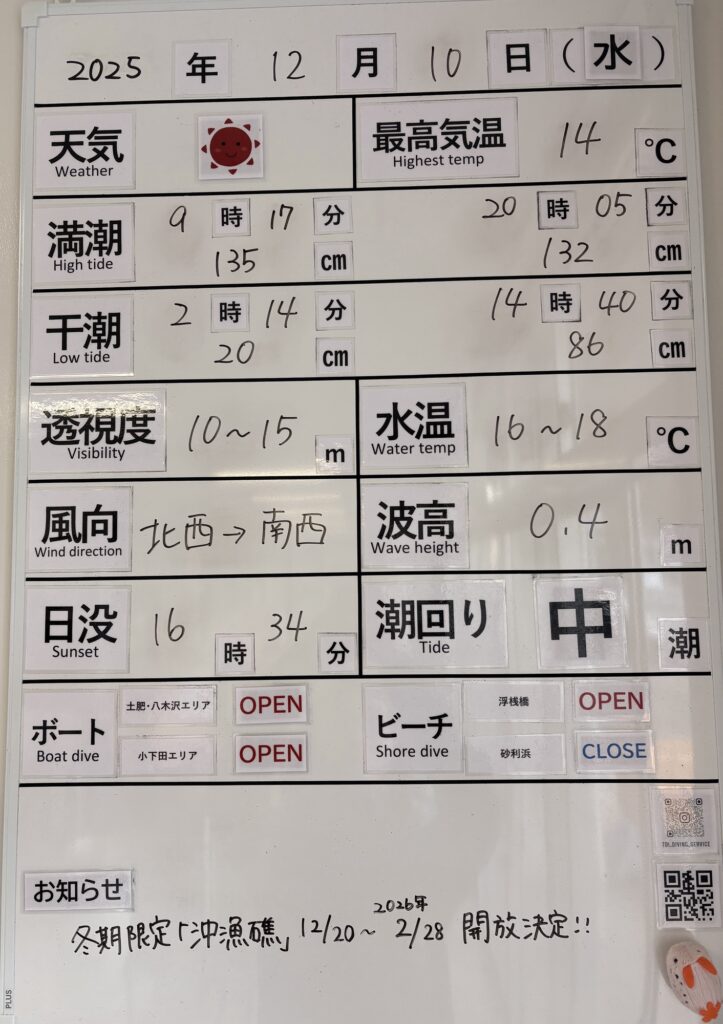 2025 年 12 月 10 日 (水)
天気 最高気温 14 ℃
Weather Highest temp
満潮 9 時 17 分 20 時 05 分
High tide 135 cm 132 cm
干潮 2 時 14 分 14 時 40 分
Low tide 20 cm 86 cm
透視度 10~15 m 水温 16~18 ℃
Visibility Water temp
風向 北西→南西 波高 0.4 m
Wind direction Wave height
日没 16 時 34 分 潮回り 中 潮
Sunset Tide
ボート 土肥・八木沢エリア OPEN ビーチ 浮桟橋 OPEN
Boat dive 小下田エリア OPEN Shore dive 砂利浜 CLOSE
TOI_DIVING_SERVICE
お知らせ
2026年
冬期限定「沖漁礁」12/20~2/28 開放決定!!
PLUS